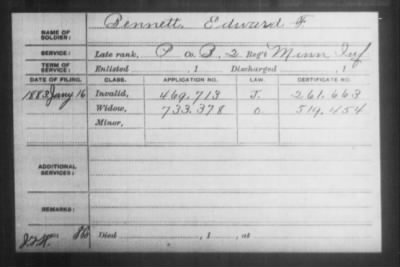 NAME OF SOLDIER: Bennett, Edward F.
SERVICE: Late rank, P Co. B, 2 Reg't Minn Inf
TERM OF SERVICE: Enlisted , 1 Discharged , 1
DATE OF FILING. CLASS. APPLICATION NO. LAW. CERTIFICATE NO.
1883 Jany 16 Invalid, 469.713 J. 261.663
Widow, 733.378 O. 519.454
Minor,
ADDITIONAL SERVICES:
REMARKS:
Died , 1 , at